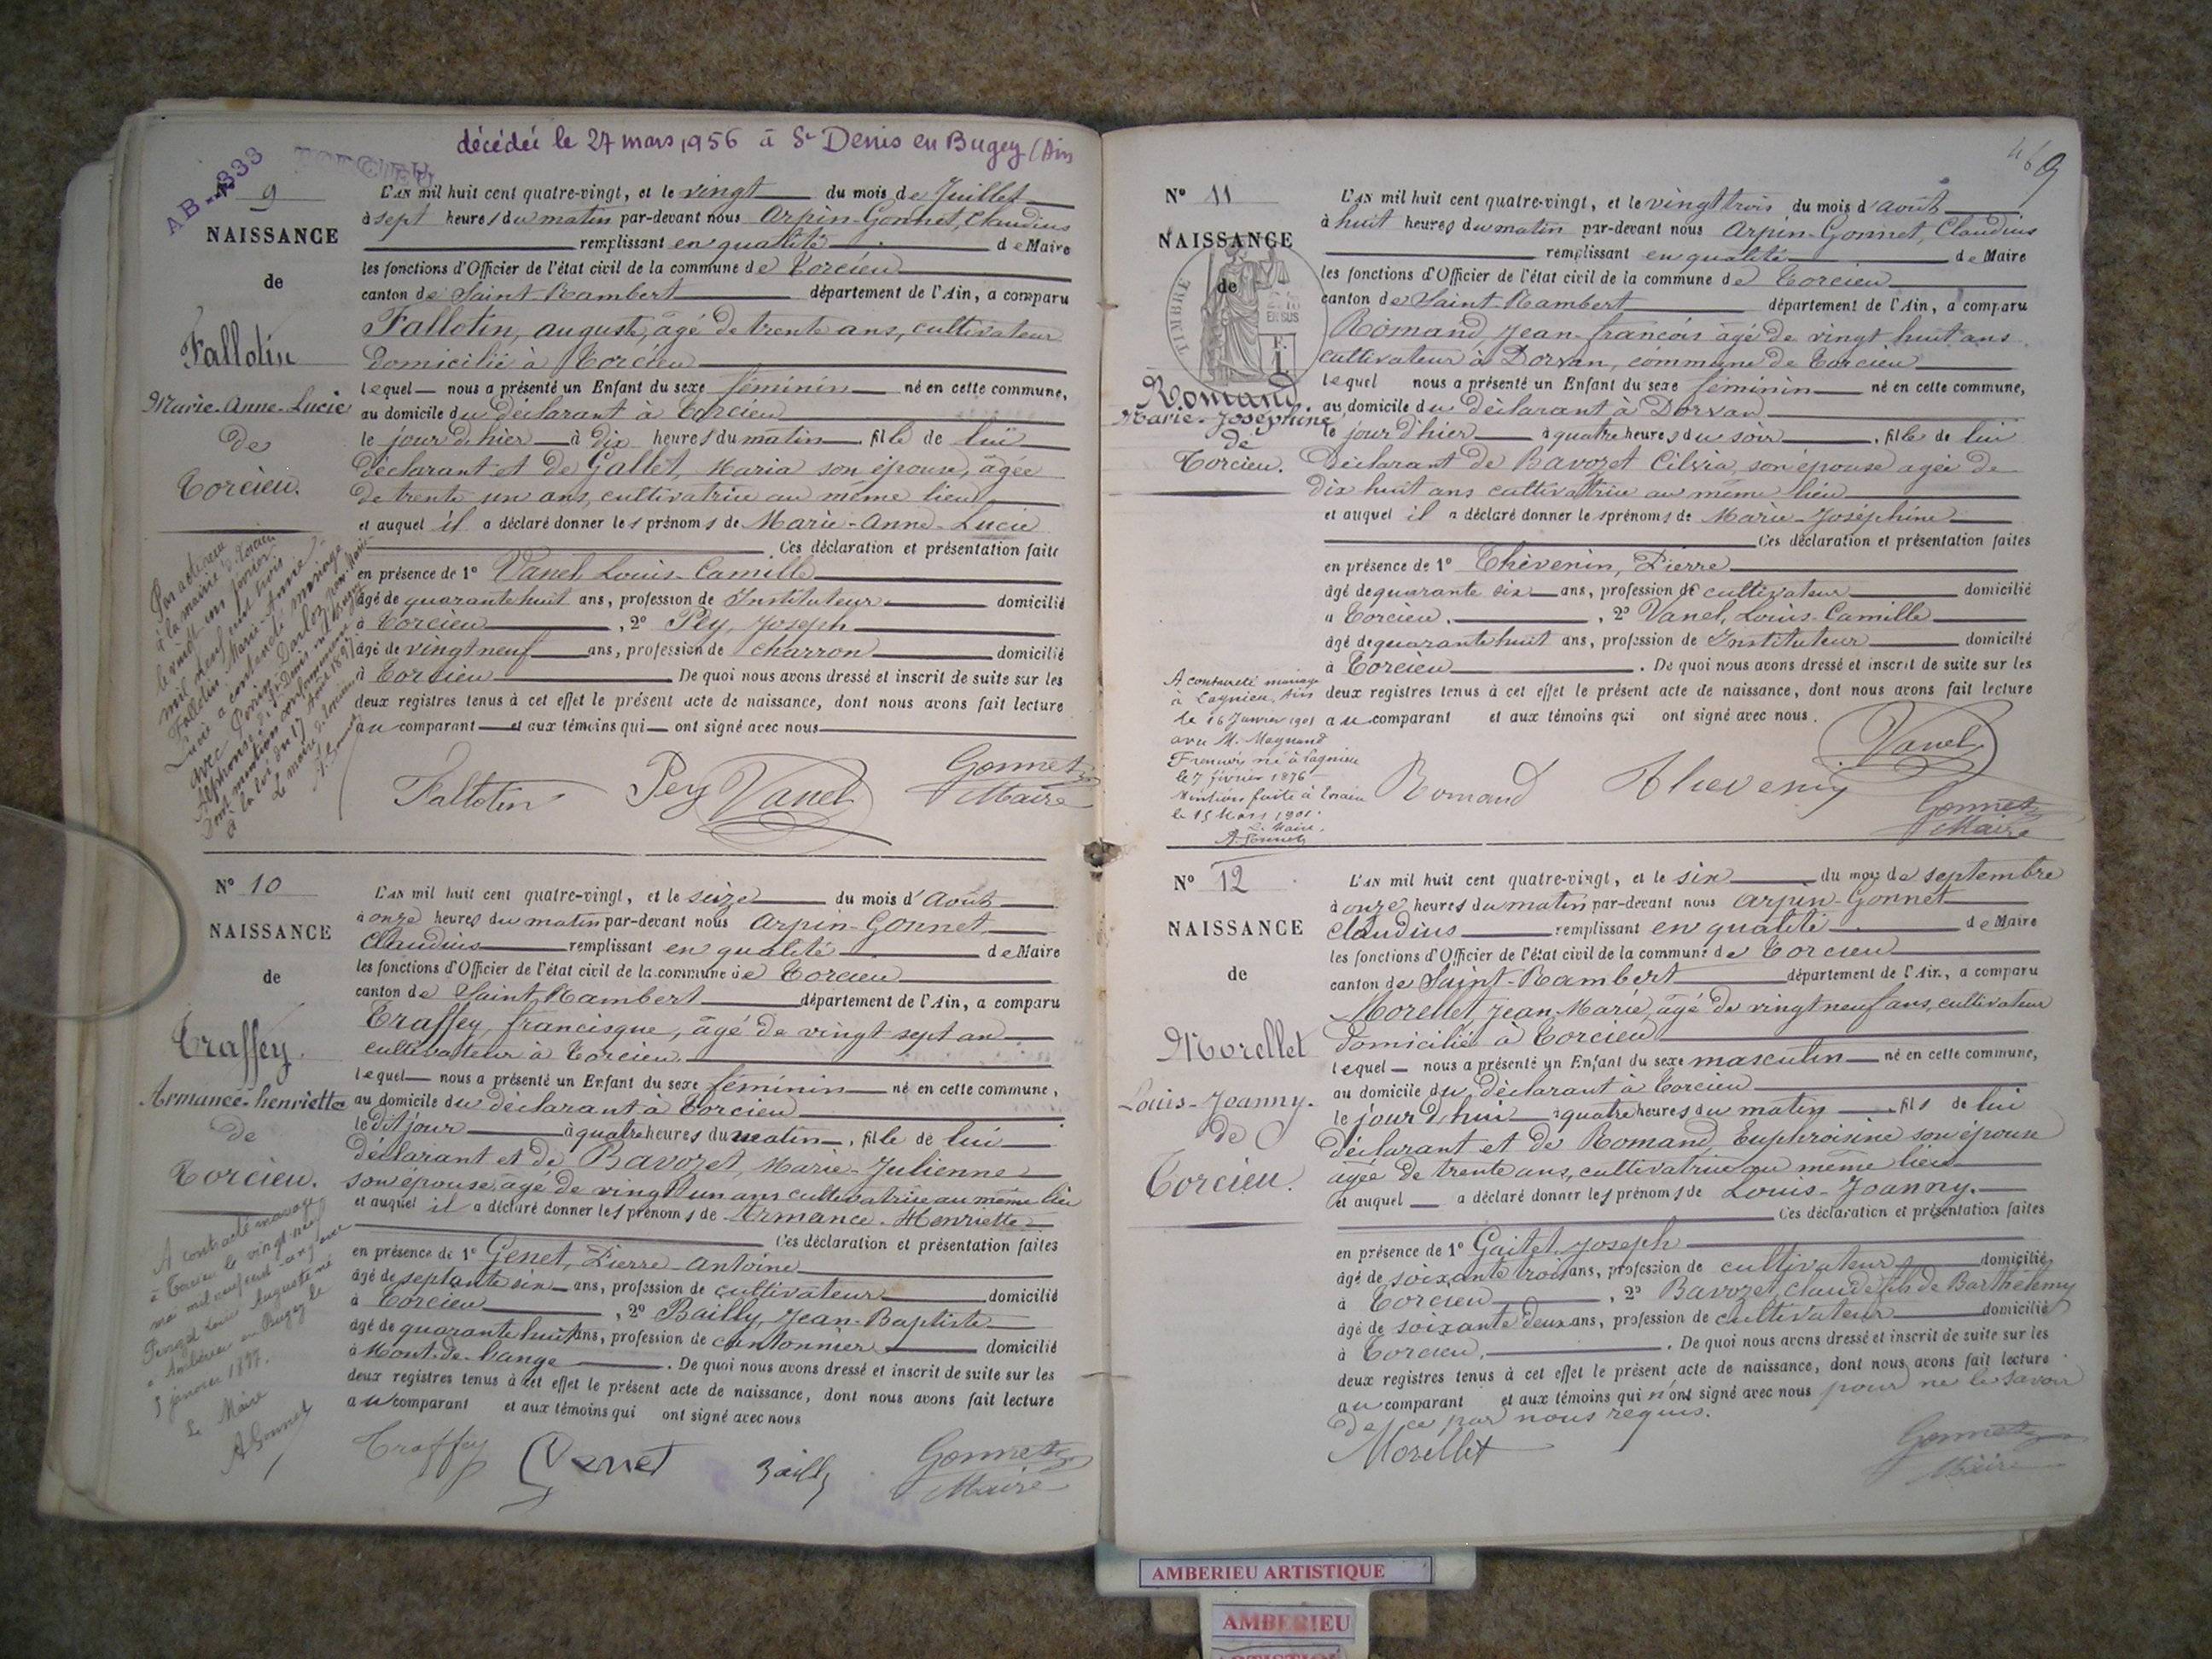 décédée le 27 mars 1956 à St Denis en Bugey (Ain
AB 333
TORCIEU
N° 9
NAISSANCE
de
Fallotin
Marie-Anne-Lucie
de
Torcieu.
L'AN mil huit cent quatre-vingt, et le vingt du mois de Juillet
à sept heures du matin par-devant nous Arpin-Gonnet, Claudius
remplissant en qualité de Maire
les fonctions d'Officier de l'état civil de la commune de Torcieu
canton de Saint-Rambert département de l'Ain, a comparu
Fallotin, auguste, âgé de trente ans, cultivateur
domicilié à Torcieu
lequel nous a présenté un Enfant du sexe féminin né en cette commune,
au domicile du déclarant à Torcieu
le jour d'hier à dix heures du matin, fille de lui
déclarant et de Gallet, Maria son épouse, âgée
de trente un ans, cultivatrice au même lieu
et auquel il a déclaré donner les prénoms de Marie-Anne-Lucie
Ces déclaration et présentation faites
en présence de 1° Vanel, Louis-Camille
âgé de quarante huit ans, profession de Instituteur domicilié
à Torcieu, 2° Pey, Joseph
âgé de vingt neuf ans, profession de charron domicilié
à Torcieu De quoi nous avons dressé et inscrit de suite sur les
deux registres tenus à cet effet le présent acte de naissance, dont nous avons fait lecture
au comparant et aux témoins qui ont signé avec nous
Par acte reçu
à la mairie de Torcieu
le vingt un février
mil neuf cent trois
Fallotin Marie-Anne-
Lucie a contracté mariage
avec Perrin Darloz
Alphonse
Dont mention conformément
à la loi du 17 août 1897
Le maire de Torcieu
Fallotin Pey Vanel Gonnet
Maire
N° 10
NAISSANCE
de
Traffey.
Armance-henriette
de
Torcieu.
L'AN mil huit cent quatre-vingt, et le seize du mois d'Août
à onze heures du matin par-devant nous Arpin-Gonnet
Claudius remplissant en qualité de Maire
les fonctions d'Officier de l'état civil de la commune de Torcieu
canton de Saint-Rambert département de l'Ain, a comparu
Traffey, francisque, âgé de vingt sept an
cultivateur à Torcieu.
lequel nous a présenté un Enfant du sexe féminin né en cette commune,
au domicile du déclarant à Torcieu
le dit jour à quatre heures du matin, fille de lui
déclarant et de Bavozet, Marie-Julienne
son épouse, âgé de vingt un ans cultivatrice au même lieu
et auquel il a déclaré donner les prénoms de Armance-Henriette
Ces déclaration et présentation faites
en présence de 1° Genet, Pierre-Antoine
âgé de septante six ans, profession de cultivateur domicilié
à Torcieu, 2° Bailly, Jean-Baptiste
âgé de quarante huit ans, profession de cantonnier domicilié
à Mont-de-lange. De quoi nous avons dressé et inscrit de suite sur les
deux registres tenus à cet effet le présent acte de naissance, dont nous avons fait lecture
au comparant et aux témoins qui ont signé avec nous
A contracté mariage
à Torcieu le vingt neuf
mai mil neuf cent
Louis Auguste né
à Ambérieu en Bugey le
5 janvier 1877.
Le Maire
A Gonnet
Traffey Genet Bailly Gonnet
Maire
469
N° 11
NAISSANCE
de
TIMBRE
Romand.
Marie-Joséphine
de
Torcieu.
L'AN mil huit cent quatre-vingt, et le vingt trois du mois d'août
à huit heures du matin par-devant nous Arpin-Gonnet, Claudius
remplissant en qualité de Maire
les fonctions d'Officier de l'état civil de la commune de Torcieu
canton de Saint-Rambert département de l'Ain, a comparu
Romand, Jean-françois âgé de vingt huit ans
cultivateur à Dorvan, commune de Torcieu
lequel nous a présenté un Enfant du sexe féminin né en cette commune,
au domicile du déclarant à Dorvan
le jour d'hier à quatre heures du soir, fille de lui
Déclarant de Bavozet Cilvia, son épouse agée de
dix huit ans cultivatrice au même lieu
et auquel il a déclaré donner les prénoms de Marie-Joséphine
Ces déclaration et présentation faites
en présence de 1° Thévenin, Pierre
âgé de quarante six ans, profession de cultivateur domicilié
à Torcieu, 2° Vanel, Louis-Camille
âgé de quarante huit ans, profession de Instituteur domicilié
à Torcieu. De quoi nous avons dressé et inscrit de suite sur les
deux registres tenus à cet effet le présent acte de naissance, dont nous avons fait lecture
au comparant et aux témoins qui ont signé avec nous.
A contracté mariage
à Lagnieu, Ain
le 16 Janvier 1901
avec M. Magnand
François né à Lagnieu
le 7 février 1876
Mention faite à Torcieu
le 15 Mars 1901.
Le Maire,
A. Gonnet
Romand Thevenin Vanel
Gonnet
Maire
N° 12
NAISSANCE
de
Morellet
Louis-Joanny.
de
Torcieu.
L'AN mil huit cent quatre-vingt, et le six du mois de septembre
à onze heures du matin par-devant nous Arpin-Gonnet
Claudius remplissant en qualité de Maire
les fonctions d'Officier de l'état civil de la commune de Torcieu
canton de Saint-Rambert département de l'Ain, a comparu
Morellet, Jean-Marie, âgé de vingt neuf ans, cultivateur
domicilié à Torcieu
lequel nous a présenté un Enfant du sexe masculin né en cette commune,
au domicile du déclarant à Torcieu
le jour d'hui à quatre heures du matin, fils de lui
déclarant et de Romand Euphroisine son épouse
âgée de trente ans, cultivatrice au même lieu
et auquel a déclaré donner les prénoms de Louis-Joanny.
Ces déclaration et présentation faites
en présence de 1° Gaitet Joseph
âgé de soixante trois ans, profession de cultivateur domicilié
à Torcieu, 2° Bavozet, Claude fils de Barthélemy
âgé de soixante deux ans, profession de cultivateur domicilié
à Torcieu. De quoi nous avons dressé et inscrit de suite sur les
deux registres tenus à cet effet le présent acte de naissance, dont nous avons fait lecture
au comparant et aux témoins qui n'ont signé avec nous pour ne le savoir
de ce par nous requis.
Morellet Gonnet
Maire
AMBERIEU ARTISTIQUE
AMBERIEU
ARTISTIQUE